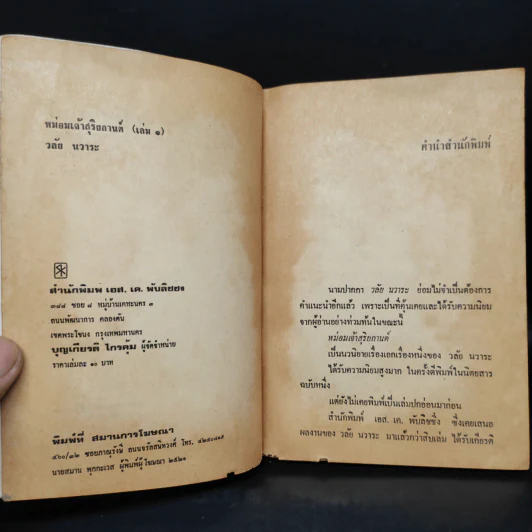 หม่อมเจ้าสุริยกานต์ (เล่ม ๑)
วลัย นวาระ
สำนักพิมพ์ เอส. เค. พับลิชชิง
๓๘๘ ซอย ๘ หมู่บ้านเคหะนคร ๓
ถนนพัฒนาการ คลองตัน
เขตพระโขนง กรุงเทพมหานคร
บุญเกียรติ ไกรคุ้ม ผู้จัดจำหน่าย
ราคาเล่มละ ๑๐ บาท
พิมพ์ที่ สมานการโฆษณา
๔๖๐/๓๒ ซอยภาณุรังษี ถนนจรัลสนิทวงศ์ โทร.
นายสมาน พุกกะเวส ผู้พิมพ์ผู้โฆษณา ๒๕๒๑
คำนำสำนักพิมพ์
นามปากกา วลัย นวาระ ย่อมไม่จำเป็นต้องการ
คำแนะนำอีกแล้ว เพราะเป็นที่คุ้นเคยและได้รับความนิยม
จากผู้อ่านอย่างท่วมท้นในขณะนี้
หม่อมเจ้าสุริยกานต์
เป็นนวนิยายเรื่องเอกเรื่องหนึ่งของ วลัย นวาระ
ได้รับความนิยมสูงมาก ในครั้งตีพิมพ์ในนิตยสาร
ฉบับหนึ่ง
แต่ยังไม่เคยพิมพ์เป็นเล่มปกอ่อนมาก่อน
สำนักพิมพ์ เอส. เค. พับลิชชิ่ง ซึ่งเคยเสนอ
ผลงานของ วลัย นวาระ มาแล้วกว่าสิบเล่ม ได้รับเกียรติ